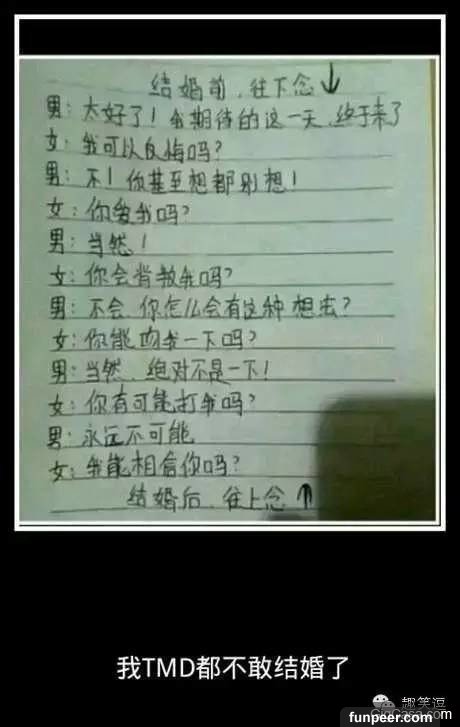 结婚前，往下念↓
男：太好了！我期待的这一天，终于来了
女：我可以反悔吗？
男：不！你甚至想都别想！
女：你爱我吗？
男：当然！
女：你会背叛我吗？
男：不会，你怎么会有这种想法？
女：你能吻我一下吗？
男：当然，绝对不是一下！
女：你有可能打我吗？
男：永远不可能
女：我能相信你吗？
结婚后，往上念↑
我TMD都不敢结婚了
趣笑逗
funpeer.com